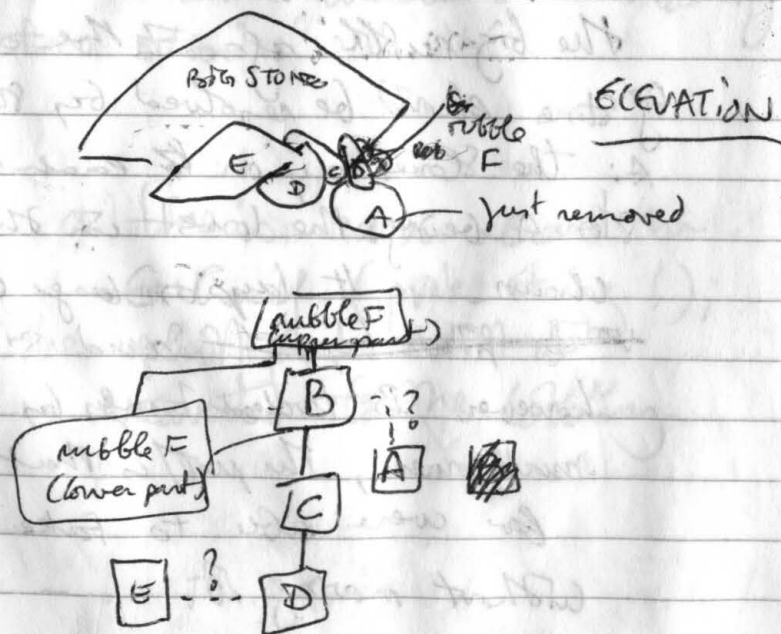 BIG STONE
ELEVATION
rubble
F
E
D
C
B
A
just removed
rubble F
(upper part)
B
?
rubble F
(lower part)
A
C
?
E
D